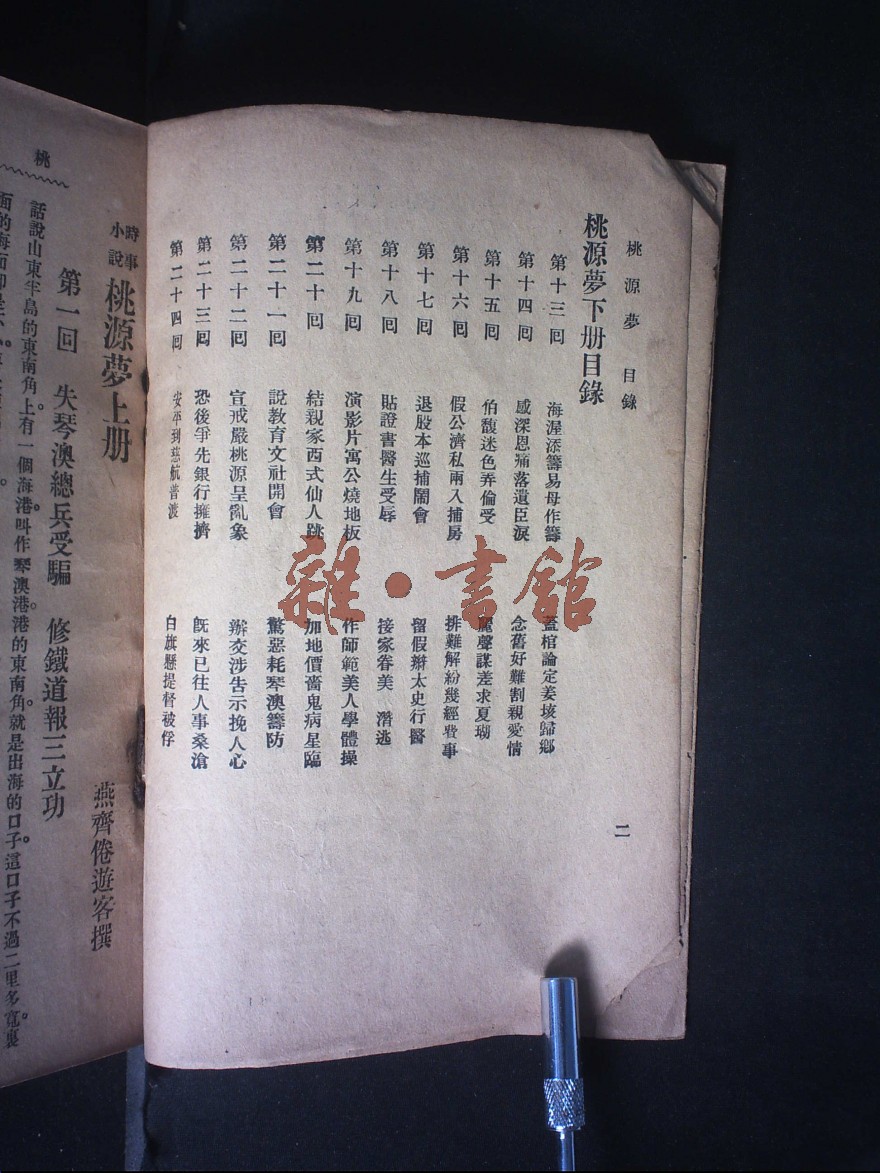 桃源夢 目錄
二
桃源夢下册目錄
第十三囘 海渥添籌易母作籌 蓋棺論定姜垓歸鄉
第十四囘 感深恩痛落遺臣淚 念舊好難割親愛情
第十五囘 伯馥迷色弄倫受 聲謀差求夏瑚
第十六囘 假公濟私兩入捕房 排難解紛幾經費事
第十七囘 退股本巡捕鬧會 留假辮太史行醫
第十八囘 貼證書醫生受辱 接家眷美 潛逃
第十九囘 演影片寓公燒地板 作師範美人學體操
第二十囘 結親家西式仙人跳 加地價嗇鬼病星臨
第二十一囘 說教育文社開會 驚惡耗琴澳籌防
第二十二囘 宣戒嚴桃源呈亂象 辦交涉告示挽人心
第二十三囘 恐後爭先銀行擁擠 旣來已往人事桑滄
第二十四囘 安平到慈航普渡 白旗懸提督被俘
雜·書館
桃
時事小說 桃源夢上册
燕齊倦遊客撰
第一囘 失琴澳總兵受騙 修鐵道報三立功
話說山東半島的東南角。上有一個海港。叫作琴澳港。港的東南角。就是出海的口子。這口子不過二里多寬。裏
面的海面